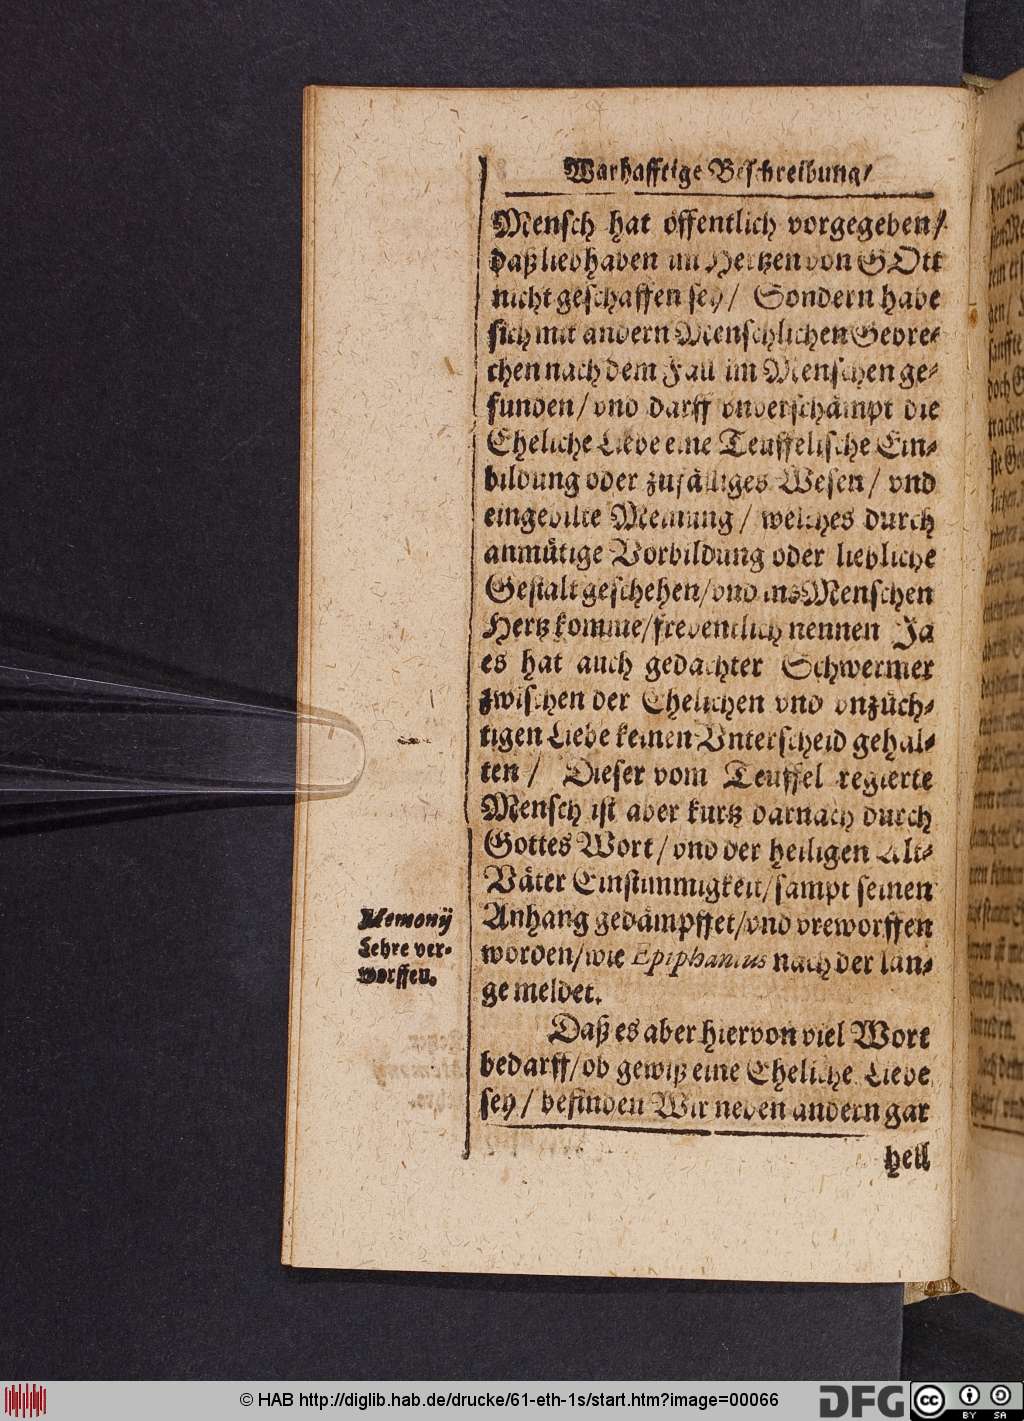 Warhafftige Beschreibung/
Mensch hat öffentlich vorgegeben/
daß liebhaben im Hertzen von GOtt
nicht geschaffen sey/ Sondern habe
sich mit andern Menschlichen Gebre-
chen nach dem Fall im Menschen ge-
funden/ vnd darff vnverschämpt die
Eheliche Liebe eine Teuffelische Ein-
bildung oder zufälliges Wesen/ vnd
eingebilte Meinung/ welches durch
anmütige Vorbildung oder liebliche
Gestalt geschehen/ vnd ins Menschen
Hertz komme/ freventlich nennen Ja
es hat auch gedachter Schwermer
zwischen der Ehelichen vnd vnzüch-
tigen Liebe keinen Vnterscheid gehal-
ten/ Dieser vom Teuffel regierte
Mensch ist aber kurtz darnach durch
Gottes Wort/ vnd der heiligen Alt-
Väter Einstimmigkeit/ sampt seinen
Anhang gedämpffet/ vnd vreworffen
worden/ wie Epiphanius nach der län-
ge meldet.
Memonij
Lehre ver-
worffen.
Daß es aber hiervon viel Wort
bedarff/ ob gewiß eine Eheliche Liebe
sey/ befinden Wir neben andern gar
hell
© HAB http://diglib.hab.de/drucke/61-eth-1s/start.htm?image=00066
DFG
cc
BY SA